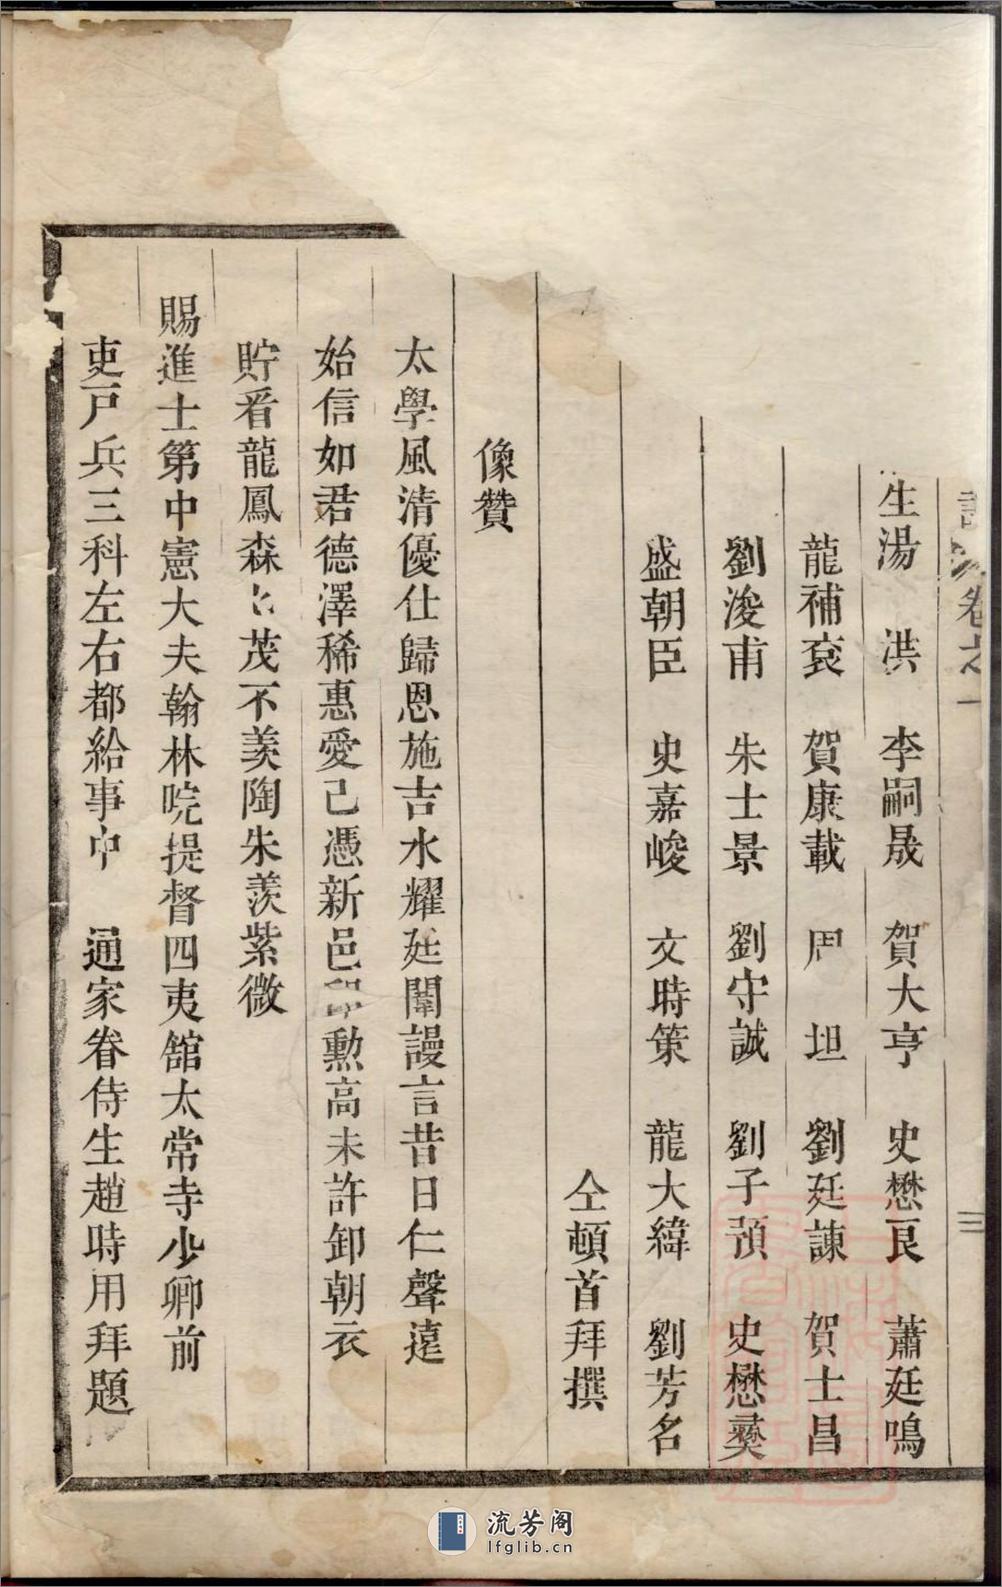 卷之一 三
生湯 洪 李嗣晟 賀大亨 史懋良 蕭廷鳴
龍補袞 賀康載 周 坦 劉廷諫 賀士昌
劉浚甫 朱士景 劉守誠 劉子預 史懋彝
盛朝臣 史嘉峻 文時策 龍大緯 劉芳名
仝頓首拜撰
像贊
太學風清優仕歸恩施吉水耀廷闈謾言昔日仁聲遠
始信如君德澤稀惠愛已憑新邑勳高未許卸朝衣
貯看龍鳳森茂不羨陶朱羨紫微
賜進士第中憲大夫翰林院提督四夷舘太常寺少卿前
吏戶兵三科左右都給事中 通家眷侍生趙時用拜題
流芳阁
lfglib.cn